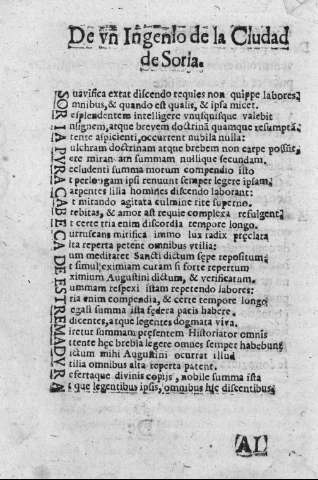 De vn Ingenio de la Ciudad
de Soria.
Suavifica extat discendo requies non quippe labores
Omnibus, & quando est qualis, & ipsa micet.
Resplendentem intelligere vnusquisque valebit
Insignem, atque brevem doctrinā quamque resumptā
Attente aspicienti, occurrent nubila nulla:
Pulchram doctrinam atque brebem non carpe possūt,
Vere miran am summam nullique secundam.
Recludenti summa morum compendio isto
At perlongam ipsi renuunt semper legere ipsam,
Carpentes illa homines discendo laborant:
At mitando agitata culmine rite superno.
Brebitas, & amor ast requie complexa refulgent
Et certe tria enim discordia tempore longo.
Curruscans mirifica immo lux radix pręclara
Alta reperta petent omnibus vtilia:
Dum meditaret Sancti dictum sępe repositum
Et simul eximiam curam si forte repertum
Eximium Augustini dictum, & verificatum.
Summam respexi istam repetendo labores:
Tria enim compendia, & certe tempore longo
Regali summa ista fędera pacis habere.
Edicentes, atque legentes dogmata viva.
Miretur summam presentem Historiator omnis
Attente hęc brebia legere omues semper habebunt
Dictum mihi Augustini ocurrat illud
Vtilia omnibus alta reperta patent.
Refertaque divinis copijs, nobile summa ista
At que legentibus ipsis, omnibus hic discentibus.
AL